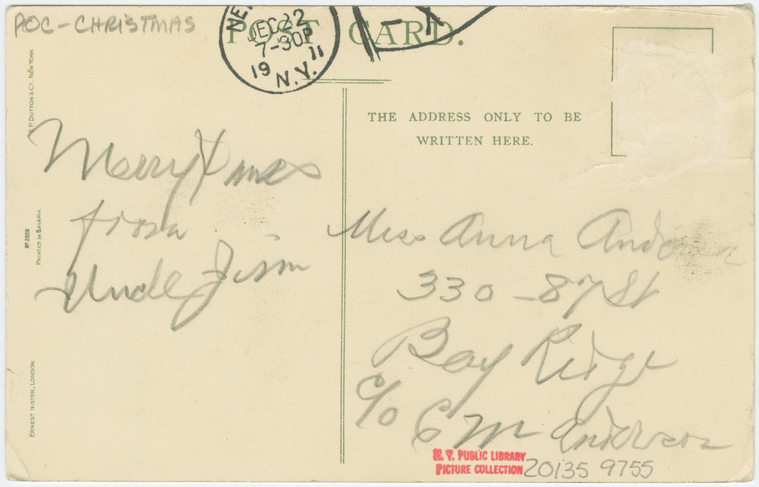 POC-CHRISTMAS
POST CARD.
DEC 22
7-30P
1911
N.Y.
THE ADDRESS ONLY TO BE
WRITTEN HERE.
E.P. DUTTON & CO. NEW YORK
Nº 2028
PRINTED IN BAVARIA
ERNEST NISTER, LONDON
Merry Xmas
from
Uncle Jim
Miss Anna Anderson
330-87 St
Bay Ridge
c/o C M Anderson
N. Y. PUBLIC LIBRARY
PICTURE COLLECTION
20135 9755